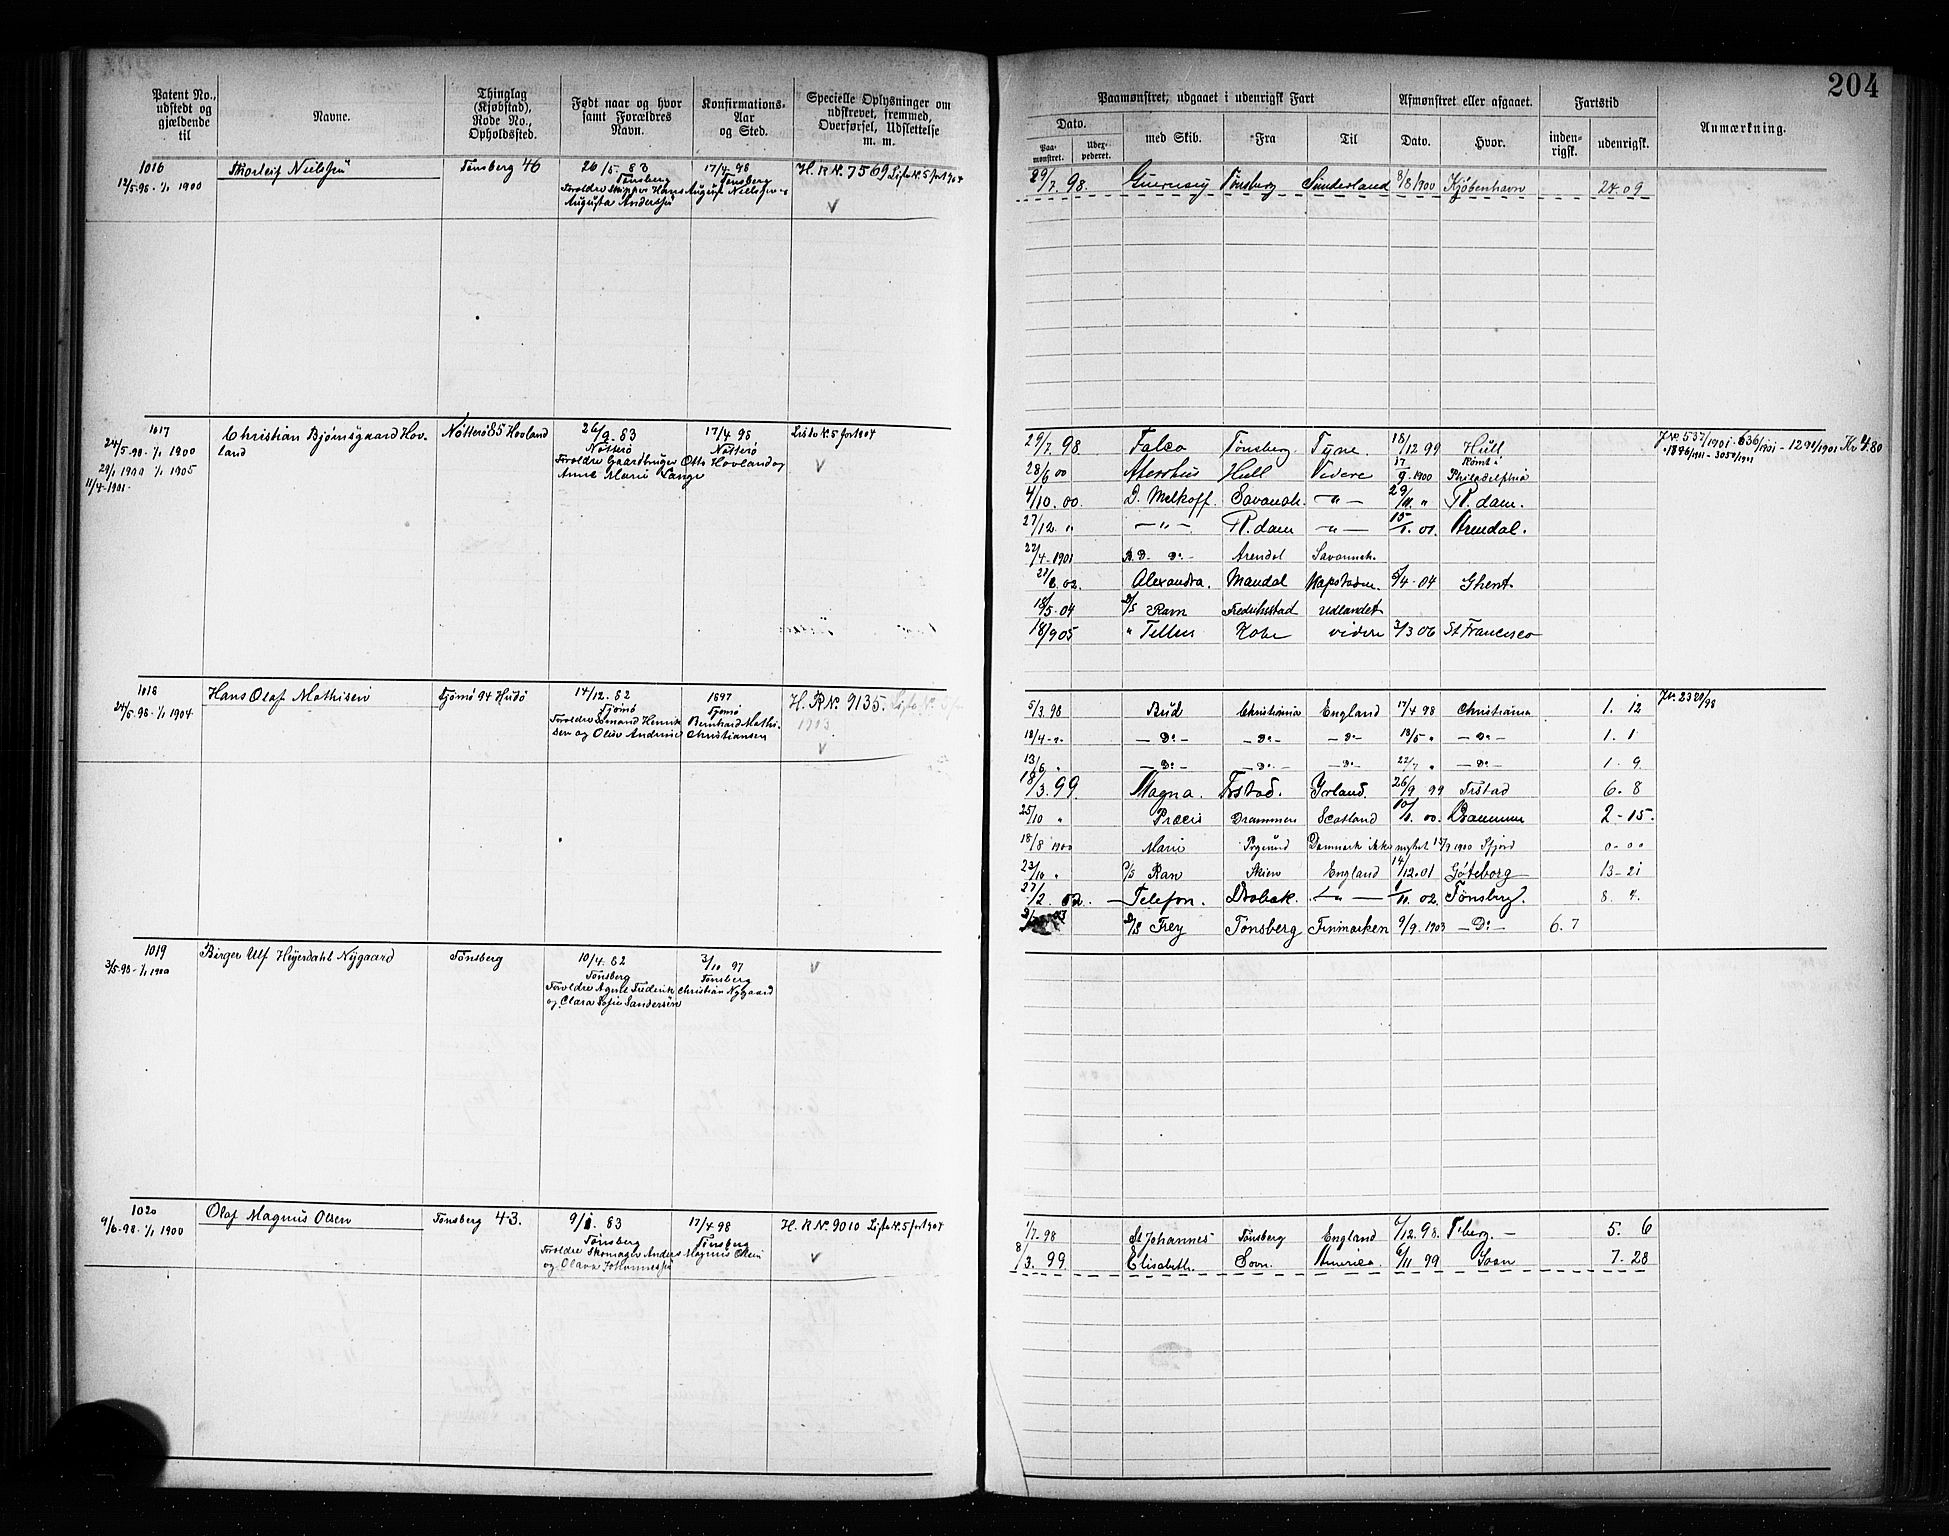 204
Patent No., udstedt og gjældende til
Navne.
Thinglag (Kjøbstad), Rode No., Opholdssted.
Født naar og hvor samt Forældres Navn.
Konfirmations- Aar og Sted.
Specielle Oplysninger om udskrevet, fremmed, Overførsel, Udslettelse m. m.
Paamønstret, udgaaet i udenrigsk Fart
Afmønstret eller afgaaet.
Fartstid
Anmærkning.
Dato.
Paa- mønstret.
Udex- pederet.
med Skib.
Fra
Til
Dato.
Hvor.
inden- rigsk.
udenrigsk.
1016
12/5-98-1/1 1900
Thorleif Nielsen
Tønsberg 46
26/5 83
Tønsberg
Forældre Skipper Hans August Nielsen og
Augusta Andersen
17/4 98
Tønsberg
H. R No. 7569 Liste No. 5 for 1904
V
29/7 98. Guernsey Tønsberg Sunderland 8/8 1900 Kjøbenhavn 24. 09
1017
24/5-98-1/1 1900
29/1 1900 1/1 1905
11/4-1901
Christian Bjørnsgaard Hov-
land
Nøtterø 85 Hovland
26/9. 83
Nøtterø
Forældre Gaardbruger Otto Hovland og
Anne Marie Lange
17/4 98
Nøtterø
Liste No. 5 for 1904
V
29/7. 98. Falco Tønsberg Tyne. 18/12 99 Hull
28/6 00 Akershus Hull Videre 17/9. 1900 Philadelphia
4/10. 00. D. Melkoff. Savanah. — " — 29/11. " R. dam.
27/12 " — " — R. dam — " — 15/1. 01. Arendal.
22/4-1901 Do Arendal Savannah.
22/8 02. Alexandra. Mandal Kapstaden. 5/4-04 Ghent
18/5-04 D/S Ravn Fredrikstad Udlandet
18/9 05 " Tellus Kobe videre 3/3 06 St Francisco
J.No. 537/1901 - 636/1901 - 1291/1901 Kr 4.80
1896/1901 - 3050/1901
1018
24/5-98-1/1 1904
Hans Olaf Mathisen
Tjømø 94 Hudø
14/12. 82
Tjømø
1897
Tjømø
H. R No. 9135. Liste No. 5 for
1903
V
5/3. 98 Bud Christiania England 17/4 98 Christiania 1. 12
18/4 - " — Do — — Do — — Do — 18/5 " — Do — 1. 1
13/6 " — Do — — Do. — — Do — 22/7 " — Do — 1. 9
18/3. 99. Magna. Frstad. Irland. 26/9 99 Frstad 6. 8
25/10 " Præcis Drammen Scotland 10/1. 00. Drammen 2-15.
18/8 1900 Marie Danmark ikke 15/9 1900 0-00
23/10 " D/S Ran Skien England 14/12.01 Gøteborg 13-21
27/2. 02. Telefon. Drøbak. — " — 1/11. 02. Tønsberg. 8. 4.
D/S Frey Tønsberg Finmarken 9/9. 1903 — Do — 6. 7
J.No. 2329/98
1019
3/5-98-1/1 1900
Birger Ulf Heyerdahl Nygaard
Tønsberg
10/4. 82
Tønsberg
Forældre Agent Frederik Christian Nygaard
og Clara Sofie Sandersen
3/10 97
Tønsberg
V
1020
9/6-98-1/1 1900
Olaf Magnus Olsen
Tønsberg 43.
9/1. 83
Tønsberg
Forældre Skomager Anders Magnus Olsen
og Olava Johannesen
17/4 98
Tønsberg
H. R No. 9010 Liste No. 5 for 1904
V
1/7-98 St Johannes Tønsberg England 6/12. 98. T.berg. — 5. 6
8/3. 99. Elisabeth. Sovn. America. 6/11 99 7. 28